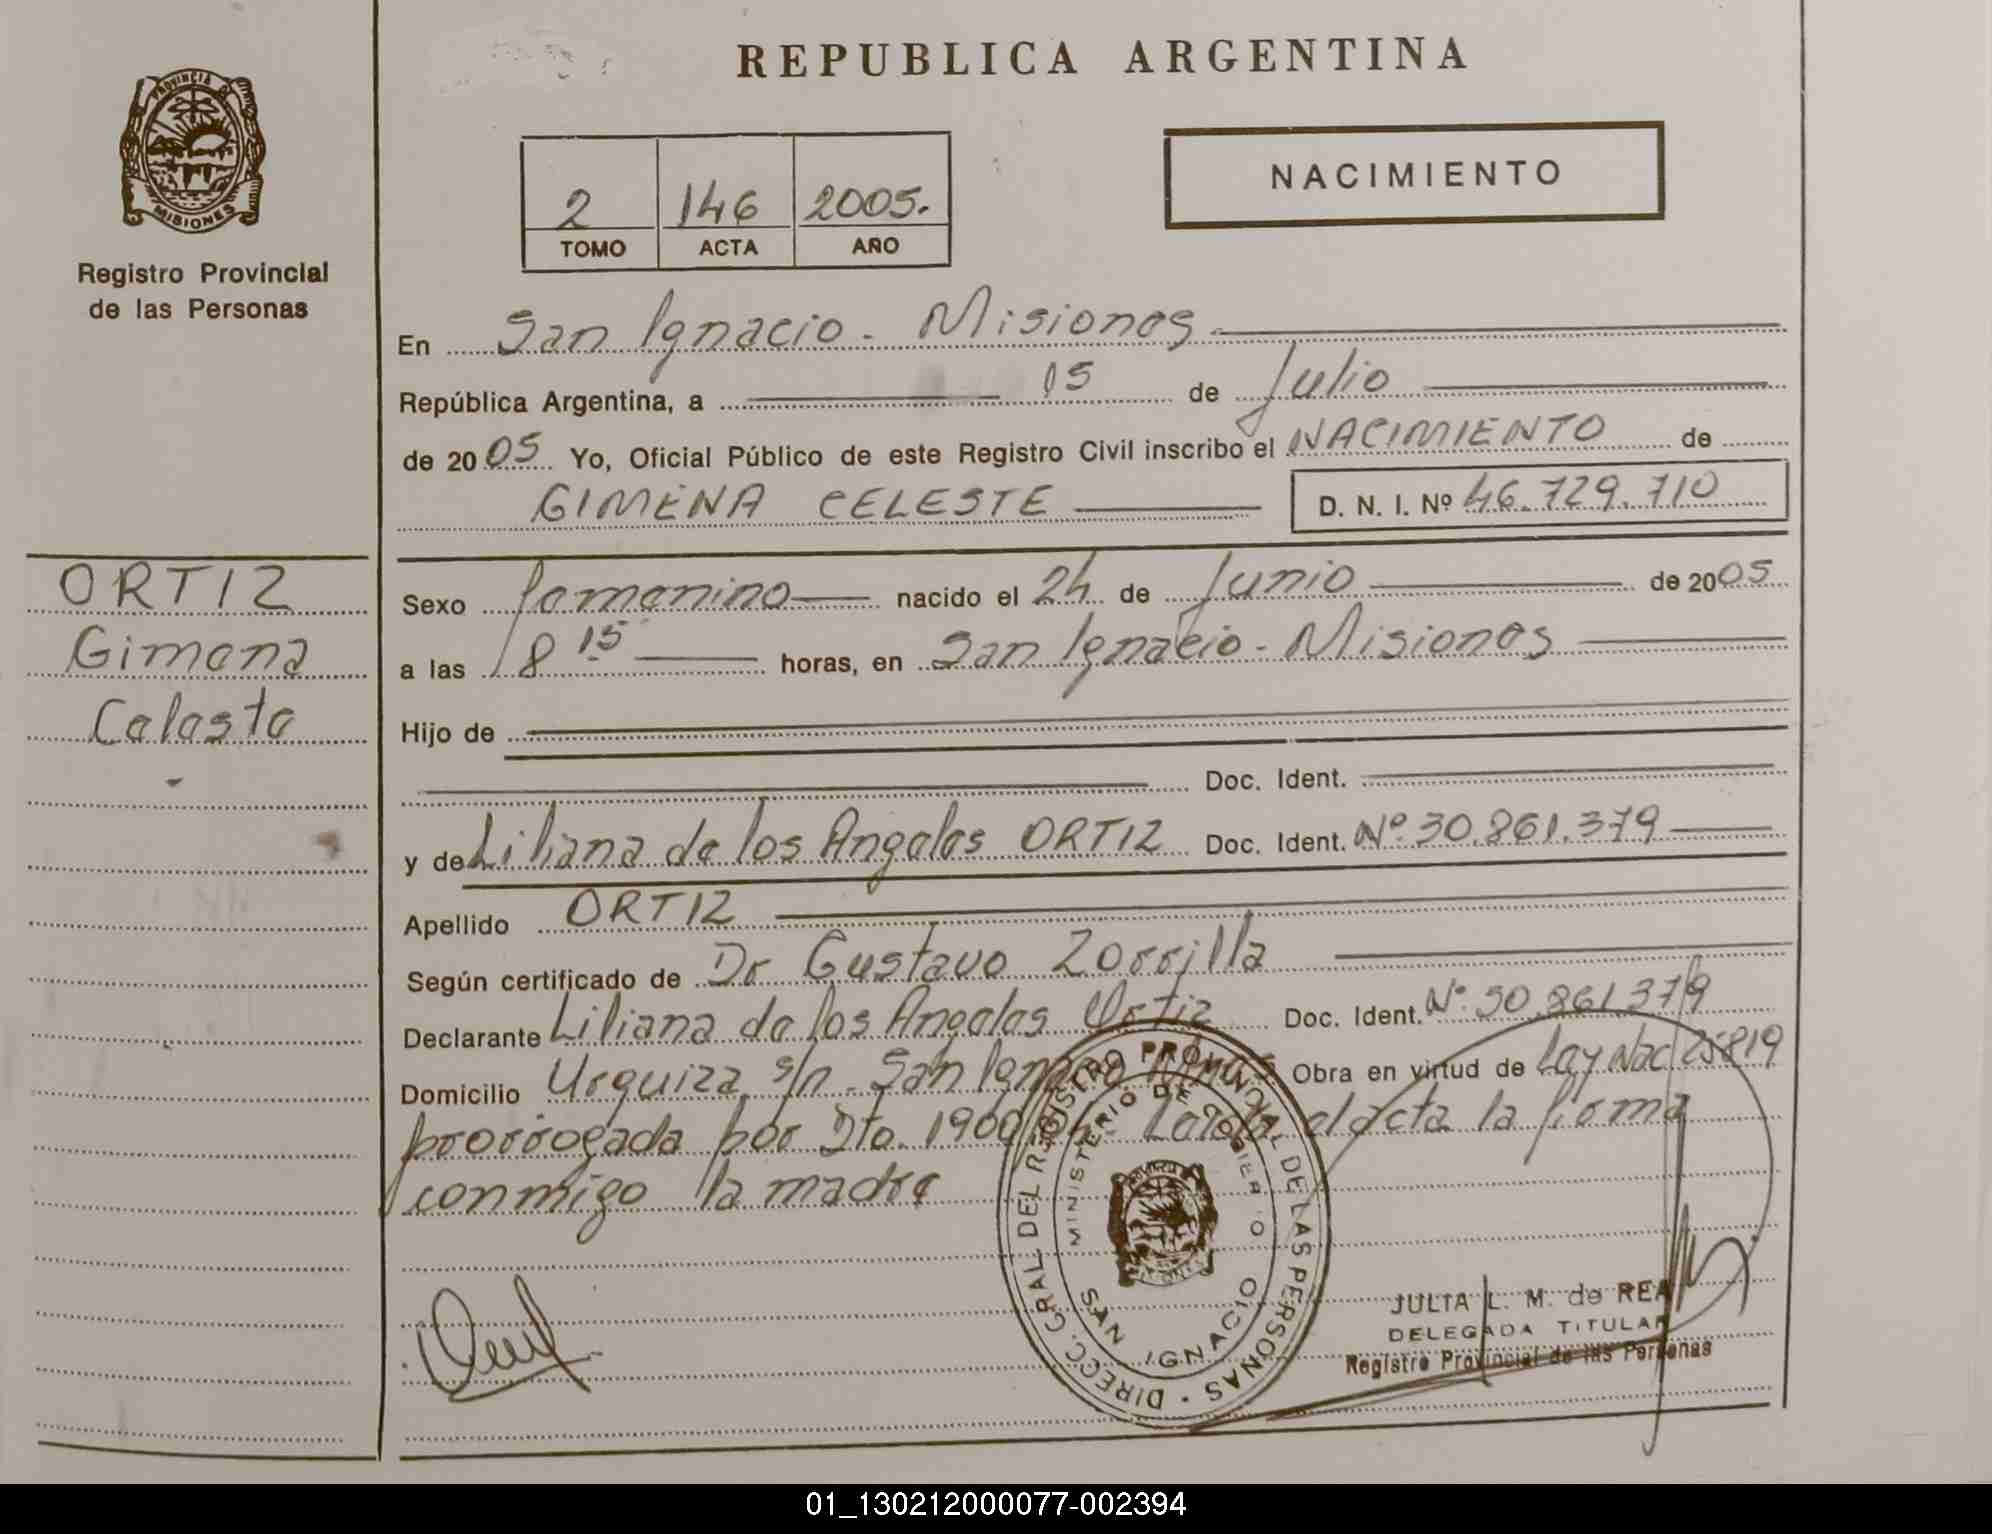 REPUBLICA ARGENTINA
PROVINCIA DE MISIONES
Registro Provincial
de las Personas
2 146 2005.
TOMO ACTA AÑO
NACIMIENTO
En San Ignacio - Misiones
República Argentina, a 15 de Julio
de 2005 Yo, Oficial Público de este Registro Civil inscribo el NACIMIENTO de
GIMENA CELESTE D. N. I. Nº 46.729.710
ORTIZ
Gimena
Celeste
Sexo femenino nacido el 24 de Junio de 2005
a las 18 15 horas, en San Ignacio - Misiones
Hijo de
Doc. Ident.
y de Liliana de los Angeles ORTIZ Doc. Ident. Nº 30.861.379
Apellido ORTIZ
Según certificado de Dr Gustavo Zorrilla
Declarante Liliana de los Angeles Ortiz Doc. Ident. Nº 30.861.379
Domicilio Urquiza s/n. San Ignacio Obra en virtud de Ley Nac 25819
prorrogada por Dto. 1900 el acta la firma
conmigo la madre
DIRECC. GRAL DEL REGISTRO PROVINCIAL DE LAS PERSONAS
MINISTERIO DE GOBIERNO
SAN IGNACIO
JULIA L. M. de REA
DELEGADA TITULAR
Registro Provincial de las Personas
01_130212000077-002394